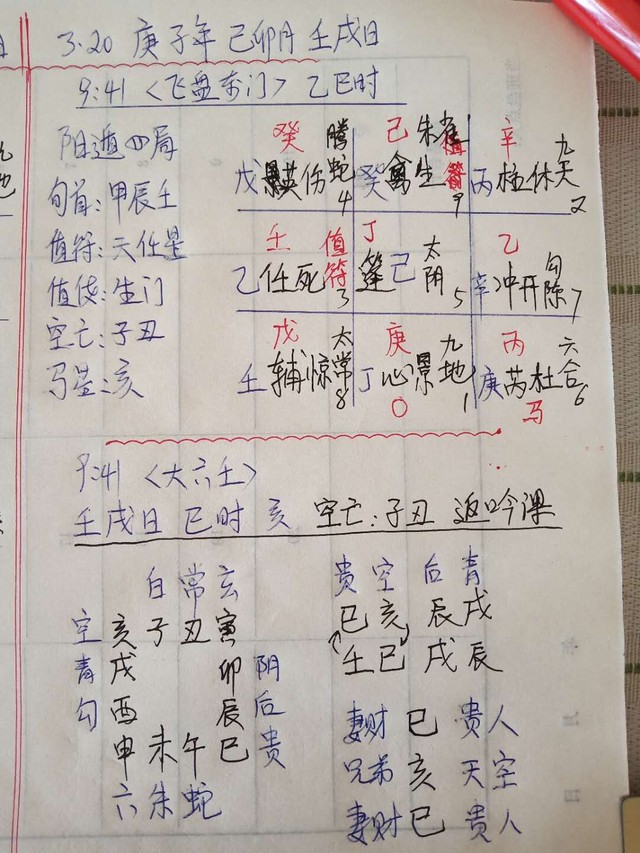 3.20 庚子年 己卯月 壬戌日
9:41 〈飞盘奇门〉 乙巳时
阳遁四局
旬首:甲辰壬
值符:天任星
值使:生门
空亡:子丑
马星:亥
癸 螣蛇 己 朱雀 值符 辛 九天
戊 英伤 4 癸 禽生 9 丙 柱休 2
壬 值符 丁 太阴 乙 勾陈
乙 任死 3 蓬 己 5 辛 冲开 7
戊 太常 庚 九地 丙 六合
壬 辅惊 8 丁 心景 1 庚 芮杜 6
O 马
9:41 〈大六壬〉
壬戌日 巳时 亥 空亡:子丑 返吟课
白 常 玄
空 亥 子 丑 寅
青 戌 卯 阴
勾 酉 辰 后
申 未 午 巳 贵
六 朱 蛇
贵 空 后 青
巳 亥 辰 戌
壬 巳 戌 辰
妻财 巳 贵人
兄弟 亥 天空
妻财 巳 贵人